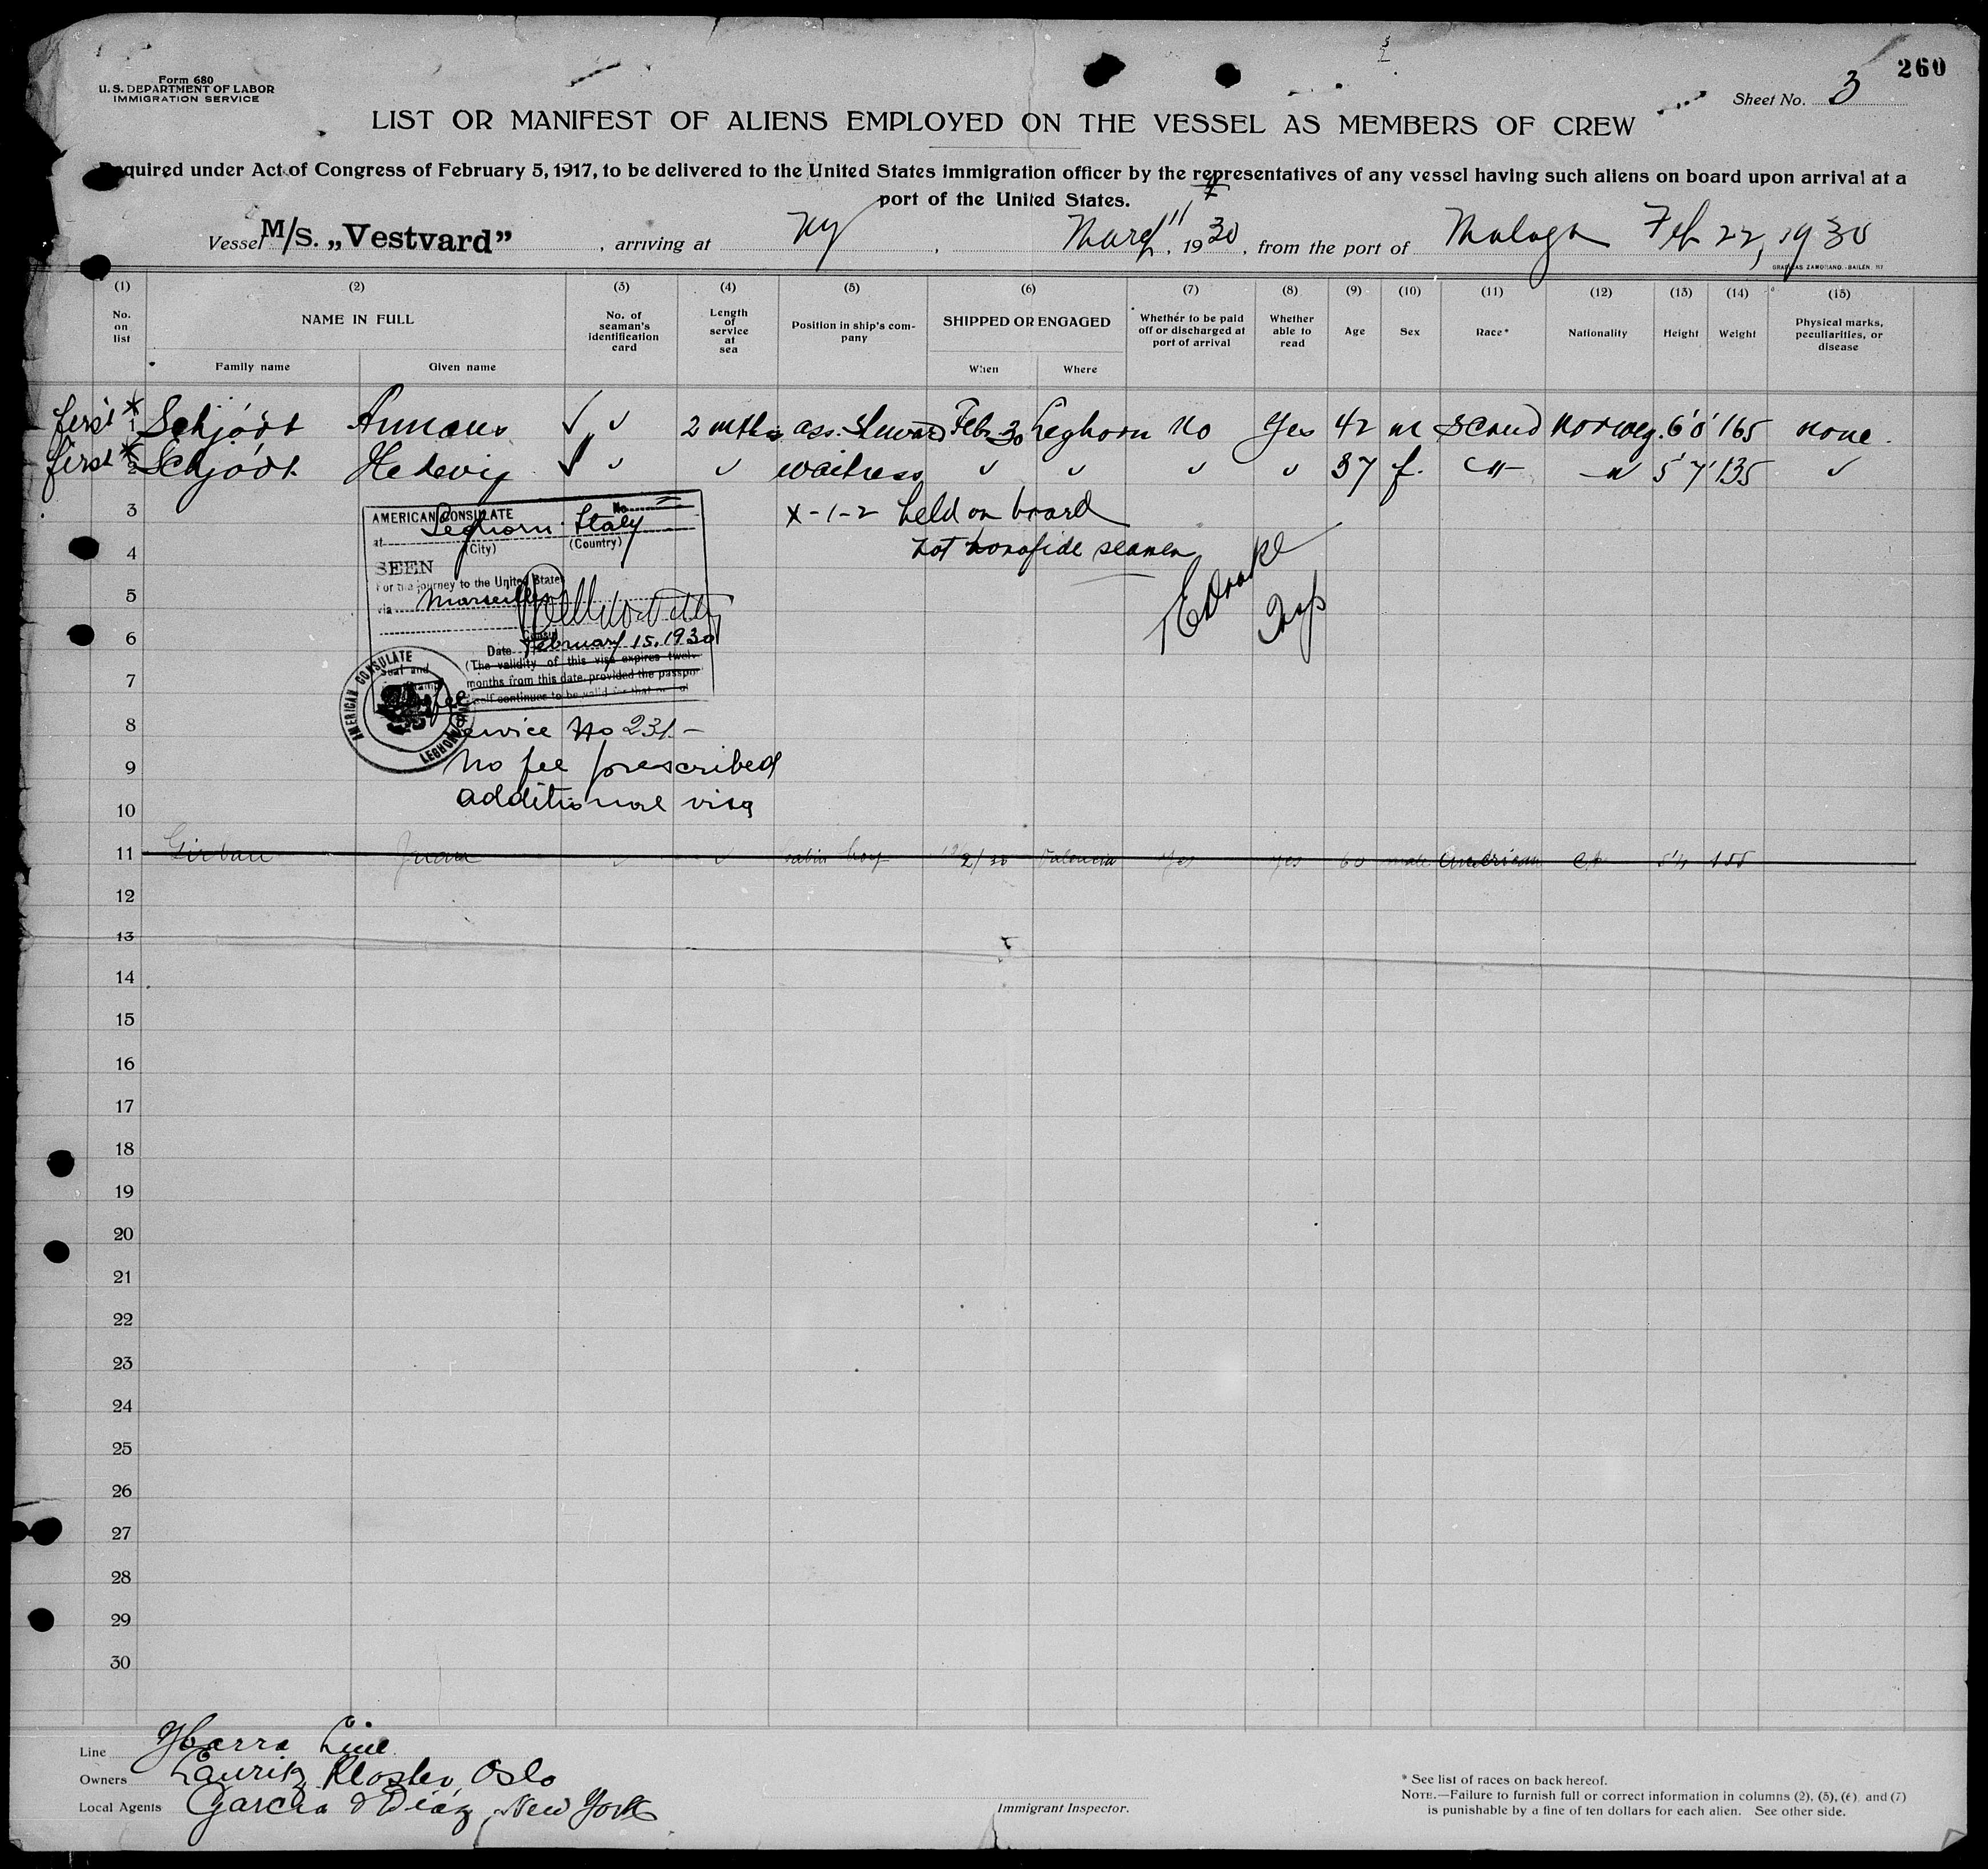 260
Form 680
U. S. DEPARTMENT OF LABOR
IMMIGRATION SERVICE
Sheet No. 3
LIST OR MANIFEST OF ALIENS EMPLOYED ON THE VESSEL AS MEMBERS OF CREW
quired under Act of Congress of February 5, 1917, to be delivered to the United States immigration officer by the representatives of any vessel having such aliens on board upon arrival at a
port of the United States.
Vessel M/S. „Vestvard” , arriving at NY , March 11 , 19 30 , from the port of Malaga Feb 22, 1930
(1) (2) (3) (4) (5) (6) (7) (8) (9) (10) (11) (12) (13) (14) (15)
No. on list NAME IN FULL No. of seaman's identification card Length of service at sea Position in ship's company SHIPPED OR ENGAGED Whether to be paid off or discharged at port of arrival Whether able to read Age Sex Race* Nationality Height Weight Physical marks, peculiarities, or disease
Family name Given name When Where
first * 1 Schjödt ✓ ✓ 2 mths ass. Steward Feb. 30 Leghorn No Yes 42 m Scand Norweg. 6'0' 165 none.
first * 2 Schjödt Hedevig ✓ ✓ ✓ waitress ✓ ✓ ✓ ✓ 37 f. -"- -"- 5'7' 135 ✓
3 x-1-2 held on board
4 not bonafide seamen
5
6
7
8
9
10
AMERICAN CONSULATE No.
at Leghorn Italy
(City) (Country)
SEEN
For the journey to the United States
via Marseilles
Consul
Date February 15, 1930
(The validity of this visa expires twel-
months from this date, provided the passpor
self continues to be valid for that
Seal and
AMERICAN CONSULATE LEGHORN
Service No 231.-
No fee prescribed
additional visa
Insp
11 Girbau Juan ✓ ✓ cabin boy 2/30 Valencia Yes yes 60 male American 5'4 155
12
13
14
15
16
17
18
19
20
21
22
23
24
25
26
27
28
29
30
Line Ybarra Line
Owners Lauritz Kloster, Oslo
Local Agents Garcia & Diaz, New York
Immigrant Inspector.
* See list of races on back hereof.
NOTE.—Failure to furnish full or correct information in columns (2), (5), (6) and (7)
is punishable by a fine of ten dollars for each alien. See other side.